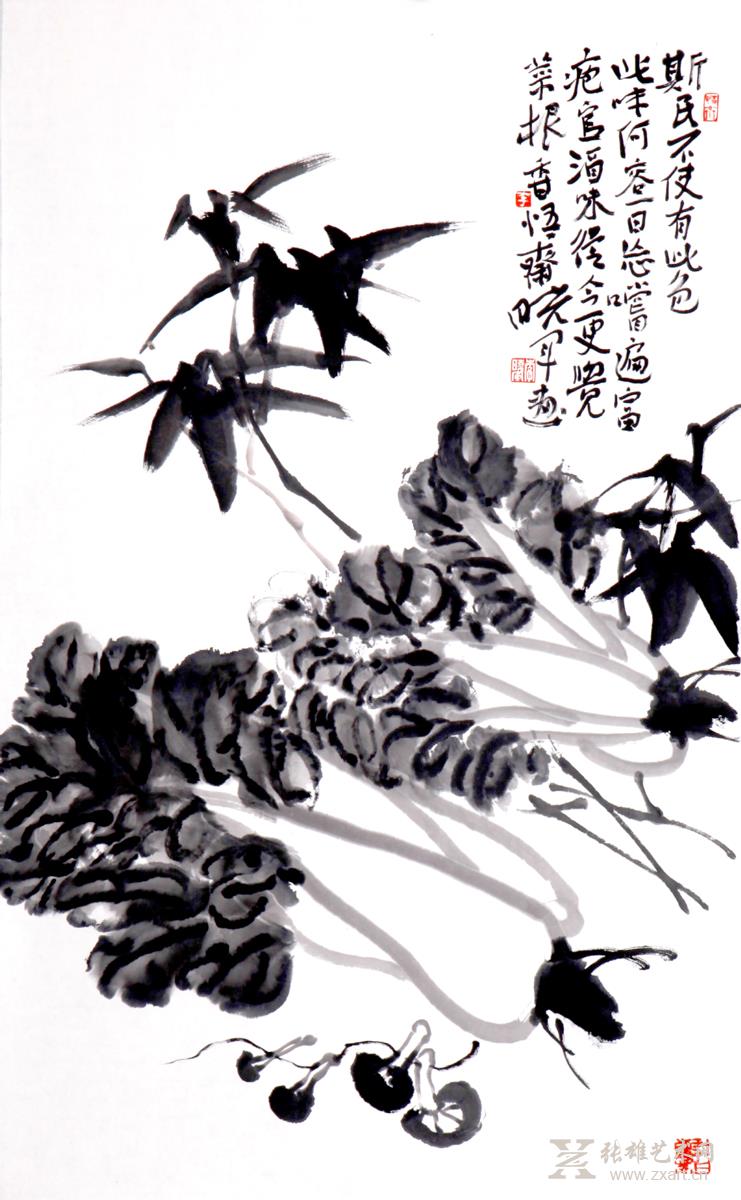 斯民不使有此色
此味何容一日忘嚐遍富
疱宫滔味從今更覺
菜根香悟齋曉军畫
李
张雄艺术网
www.zxart.cn